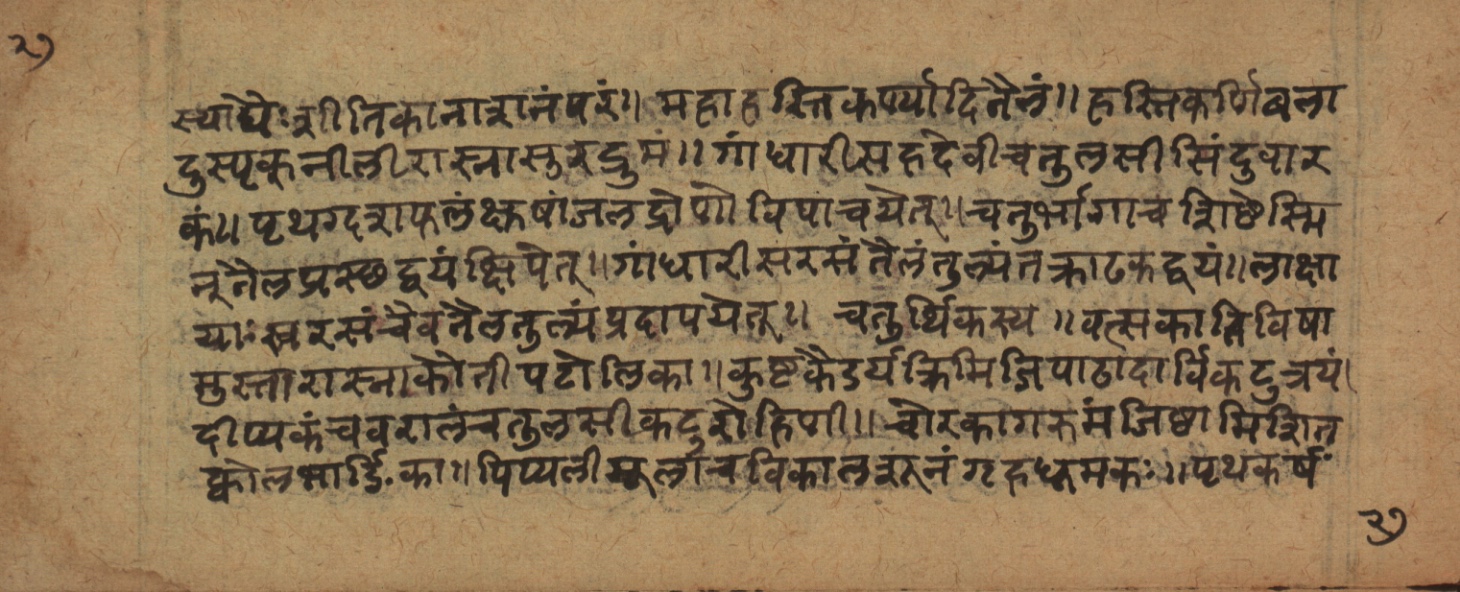 २७
स्याद्यैः शीतिकानाशनं परं॥ महाहस्तिकपर्यादितैलं॥ हस्तिकर्णिबला
दुस्पृक् नीली रास्नास्तुरद्रुमं॥ गांधारी सहदेवी च तुलसी सिंदुवार
कं॥ पृथग्दशपलं क्षुषां जलद्रोणे विपाचयेत्॥ चतुर्भागावशिष्ठेस्मि
न् तैलप्रस्छद्वयं क्षिपेत्॥ गांधारीसरसं तैलं तुल्यं तक्राढकद्वयं॥ लाक्षा
याः स्वरसं चैव तैलतुल्यं प्रदापयेत्॥ चतुर्थिकस्य॥ वत्सकातिविषा
मुस्तारास्नाकोती पटोलिका॥ कुष्टकैडर्यक्रिमिजिपाठादार्विकटुत्रयं।
दीप्यकं च वरालं च तुलसी कटुरोहिणी॥ चोरकागरुमंजिष्ठामिशित
क्कोलभार्ङ्गिका॥ पिप्पलीमूलं चविका लशूनं गृहधूमकः॥ पृथकर्षं
२७